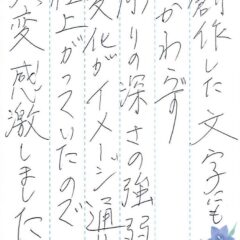 創作した文字にも
かわらず
彫りの深さの強弱
変化がイメージ通
仕上がっていたので
変感激しました